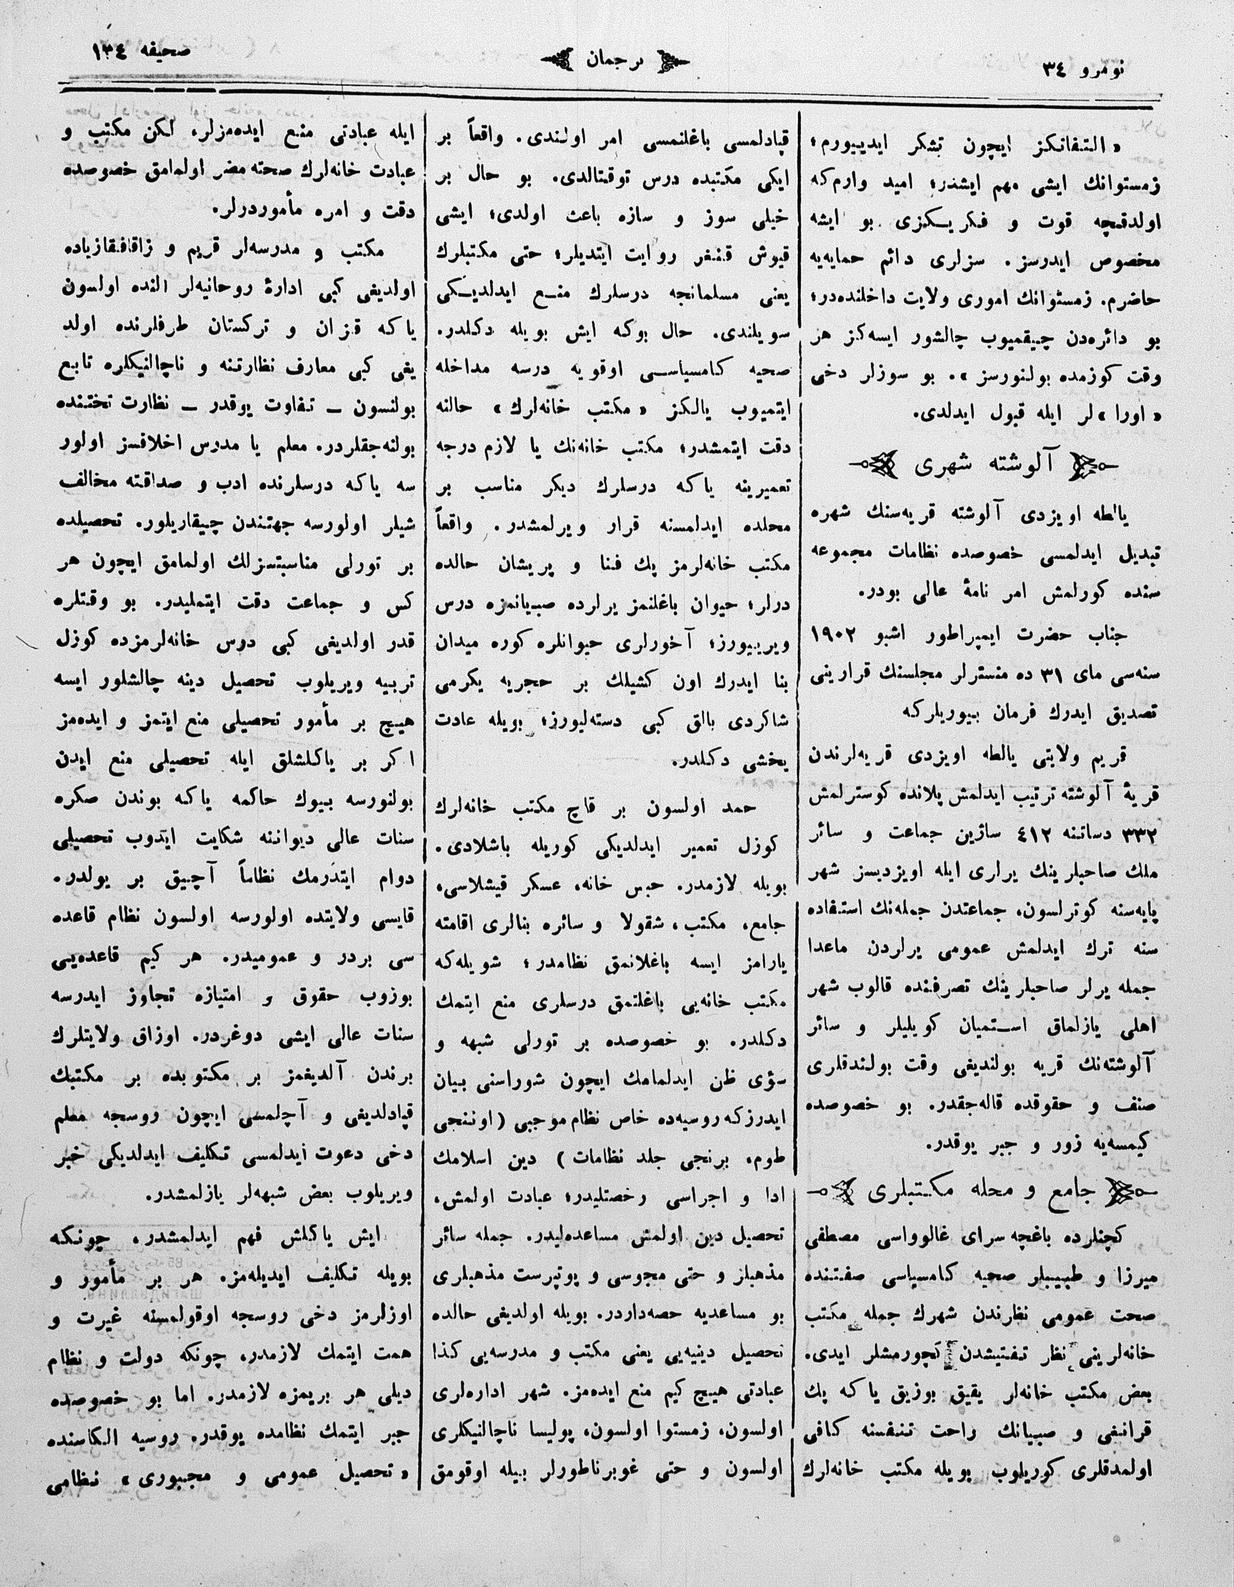 نومرو ٣٤
ترجمان
صحيفه ١٣٤
« التفاتكز ايچون تشكر ايدييورم؛
زمستوانك ايشى مهم ايشدر؛ اميد وارم كه
اولدقچه قوت و فكريكزى بو ايشه
مخصوص ايدرسز. سزلرى دائم حمايه‌يه
حاضرم. زمستوانك امورى ولايت داخلنده‌در؛
بو دائره‌دن چيقميوب چالشور ايسه‌كز هر
وقت كوزمده بولنورسز ». بو سوزلر دخى
« اورا » لر ايله قبول ايدلدى.
آلوشته شهرى
يالطه اويزدى آلوشته قريه‌سنك شهره
تبديل ايدلمسى خصوصده نظامات مجموعه
سنده كورلمش امر نامۀ عالى بودر.
جناب حضرت ايمپراطور اشبو ١٩٠٢
سنه‌سى ماى ٣١ ده منسترلر مجلسنك قرارينى
تصديق ايدرك فرمان بيوريلركه
قريم ولايتى يالطه اويزدى قريه‌لرندن
قريۀ آلوشته ترتيب ايدلمش پلانده كوسترلمش
٣٣٢ دساتنه ٤١٢ ساژين جماعت و سائر
ملك صاحبلرينك يرلرى ايله اويزديسز شهر
پايه‌سنه كوترلسون، جماعتدن جمله‌نك استفاده
سنه ترك ايدلمش عمومى يرلردن ماعدا
جمله يرلر صاحبلرينك تصرفنده قالوب شهر
اهلى يازلماق استميان كويليلر و سائر
آلوشته‌نك قريه بولنديغى وقت بولندقلرى
صنف و حقوقده قاله‌جقدر. بو خصوصده
كيمسه‌يه زور و جبر يوقدر.
جامع و محله مكتبلرى
كچنلرده باغچه سراى غالوواسى مصطفى
ميرزا و طبيبلر صحيه كامسياسى صفتنده
صحت عمومى نظرندن شهرك جمله مكتب
خانه‌لرينى نظر تفتيشدن كچورمشلر ايدى.
بعض مكتب خانه‌لر يقيق بوزيق ياكه پك
قرانغى و صبيانك راحت تنفسنه كافى
اولمدقلرى كوريلوب بويله مكتب خانه‌لرك
قپادلمسى باغلنمسى امر اولندى. واقعاً بر
ايكى مكتبده درس توقتالدى. بو حال بر
خيلى سوز و سازه باعث اولدى؛ ايشى
قيوش قنغر روايت ايتديلر؛ حتى مكتبلرك
يعنى مسلمانجه درسلرك منع ايدلديكى
سويلندى. حال بوكه ايش بويله دكلدر.
صحيه كامسياسى اوقويه درسه مداخله
ايتميوب يالكز « مكتب خانه‌لرك » حالنه
دقت ايتمشدر؛ مكتب خانه‌نك يا لازم درجه
تعميرينه ياكه درسلرك ديكر مناسب بر
محلده ايدلمسنه قرار ويرلمشدر. واقعاً
مكتب خانه‌لرمز پك فنا و پريشان حالده
درلر؛ حيوان باغلنمز يرلرده صبيانمزه درس
ويرييورز؛ آخورلرى حيوانلره كوره ميدان
بنا ايدرك اون كشيلك بر حجريه يكرمى
شاكردى بالق كبى دسته‌ليورز؛ بويله عادت
يخشى دكلدر.
حمد اولسون بر قاچ مكتب خانه‌لرك
كوزل تعمير ايدلديكى كوريله باشلادى.
بويله لازمدر. حبس خانه، عسكر قيشلاسى،
جامع، مكتب، شقولا و سائره بنالرى اقامته
يارامز ايسه باغلانمق نظامدر؛ شويله‌كه
مكتب خانه‌يى باغلتمق درسلرى منع ايتمك
دكلدر. بو خصوصده بر تورلى شبهه و
سؤى ظن ايدلمامك ايچون شوراسنى بيان
ايدرزكه روسيه‌ده خاص نظام موجبى (اوننجى
طوم، برنجى جلد نظامات) دين اسلامك
ادا و اجراسى رخصتليدر؛ عبادت اولمش،
تحصيل دين اولمش مساعده‌ليدر. جمله سائر
مذهبلر و حتى مجوسى و پوتپرست مذهبلرى
بو مساعديه حصه‌داردر. بويله اولديغى حالده
تحصيل دينيه‌يى يعنى مكتب و مدرسه‌يى كذا
عبادتى هيچ كيم منع ايده‌مز. شهر اداره‌لرى
اولسون، زمستوا اولسون، پوليسا ناچالنيكلرى
اولسون و حتى غوبرناطورلر بيله اوقومق
ايله عبادتى منع ايده‌مزلر، لكن مكتب و
عبادت خانه‌لرك صحته مضر اولمامق خصوصده
دقت و امره مأموردرلر.
مكتب و مدرسه‌لر قريم و زاقافقازياده
اولديغى كبى ادارۀ روحانيه‌لر الٌنده اولسون
ياكه قزان و تركستان طرفلرنده اولد
يغى كبى معارف نظارتنه و ناچالنيكلره تابع
بولنسون ــ تفاوت يوقدر ــ نظارت تختنده
بولنه‌جقلردر. معلم يا مدرس اخلاقسز اولور
سه ياكه درسلرنده ادب و صداقته مخالف
شيلر اولورسه جهتندن چيقاريلور. تحصيلده
بر تورلى مناسبتسزلك اولمامق ايچون هر
كس و جماعت دقت ايتمليدر. بو وقتلره
قدر اولديغى كبى دوس خانه‌لرمزده كوزل
تربيه ويريلوب تحصيل دينه چالشلور ايسه
هيچ بر مأمور تحصيلى منع ايتمز و ايده‌مز
اكر بر ياكلشلق ايله تحصيلى منع ايدن
بولنورسه بيوك حاكمه ياكه بوندن صكره
سنات عالى ديواننه شكايت ايدوب تحصيلى
دوام ايتدرمك نظاماً آچيق بر يولدر.
قايسى ولايتده اولورسه اولسون نظام قاعده
سى بردر و عموميدر. هر كيم قاعده‌يى
بوزوب حقوق و امتيازه تجاوز ايدرسه
سنات عالى ايشى دوغردر. اوزاق ولايتلرك
برندن آلديغمز بر مكتوبده بر مكتبك
قپادلديغى و آچلمسى ايچون روسجه معلم
دخى دعوت ايدلمسى تكليف ايدلديكى خبر
ويريلوب بعض شبهه‌لر يازلمشدر.
ايش ياكلش فهم ايدلمشدر، چونكه
بويله تكليف ايديله‌مز. هر بر مأمور و
اوزلرمز دخى روسجه اوقولمسنه غيرت و
همت ايتمك لازمدر، چونكه دولت و نظام
ديلى هر بريمزه لازمدر. اما بو خصوصده
جبر ايتمك نظامده يوقدر. روسيه الكاسنده
« تحصيل عمومى و مجبورى » نظامى